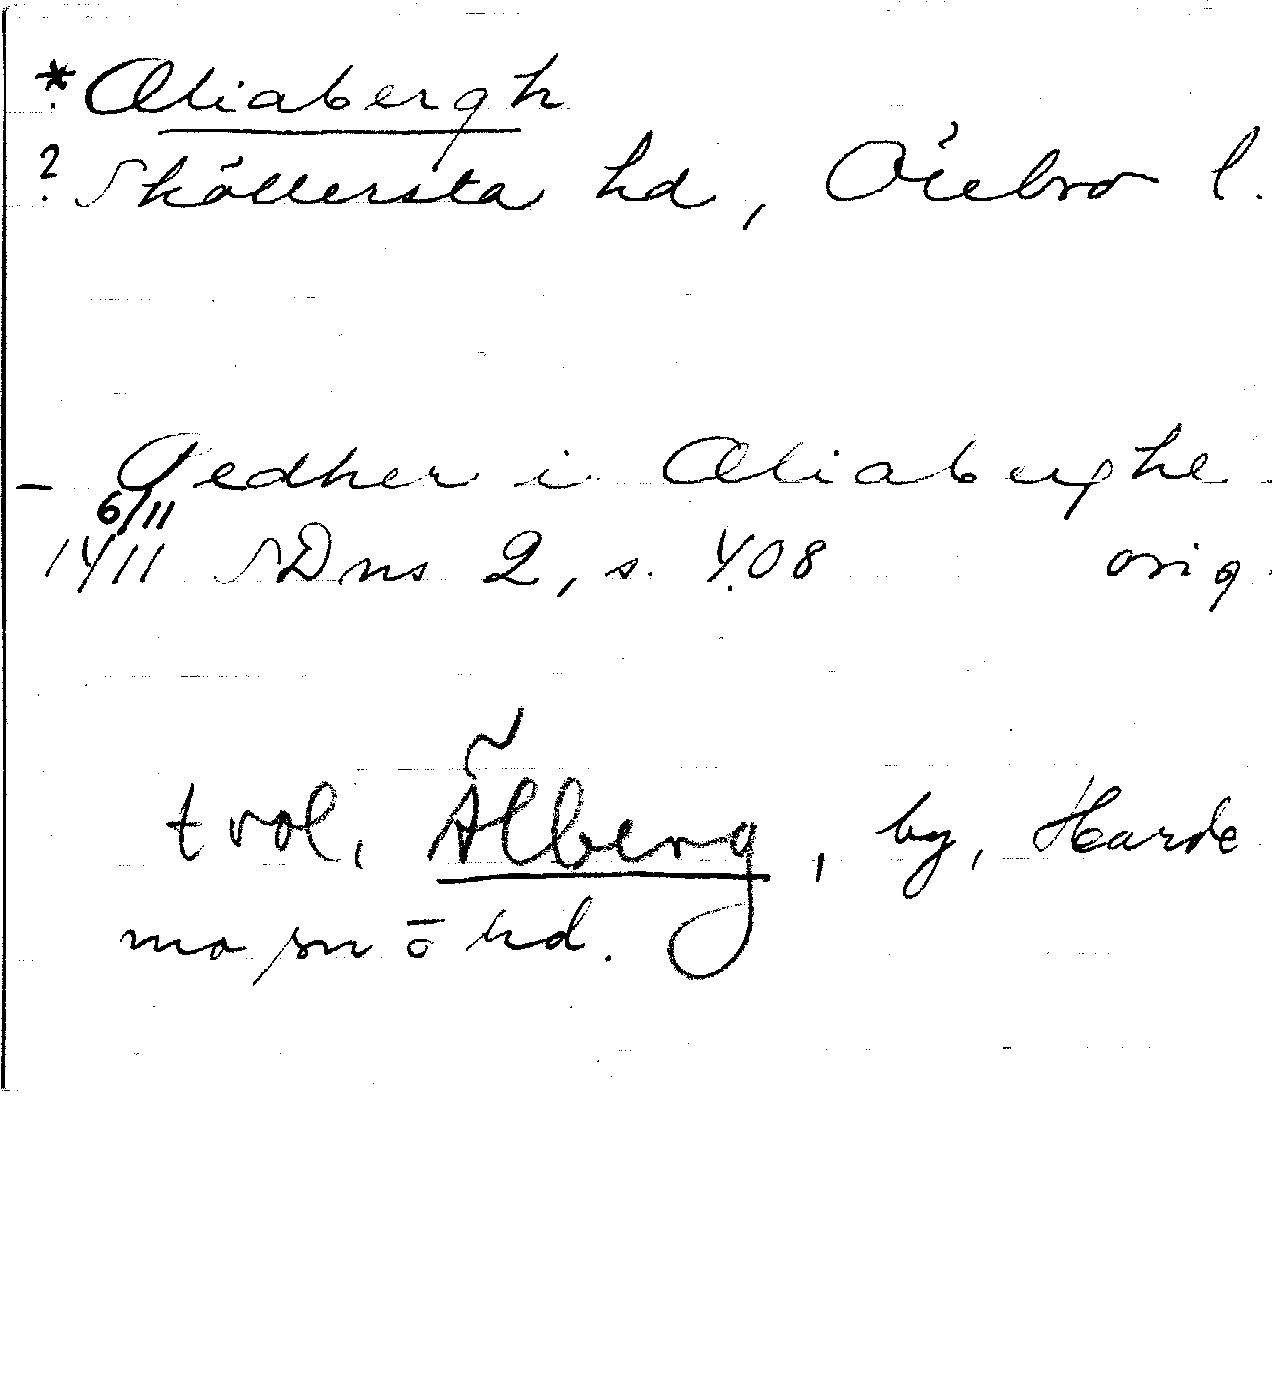 *Æliabergh
? Sköllersta hd, Örebro l.
– Pedher i Æliaberghe
6/11
1411 SDns 2, s. 408 orig.
trol. Älberg, by, Harde
mo sn o hd.